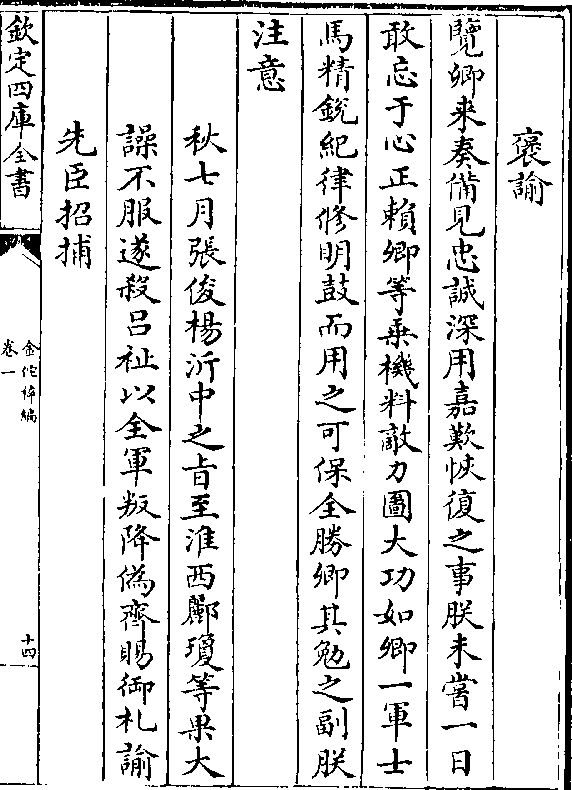 褒諭
覽卿来奏備見忠誠深用嘉歎恢復之事朕未嘗一日
敢忘于心正賴卿等乗機料敵力圖大功如卿一軍士
馬精鋭紀律修明鼓而用之可保全勝卿其勉之副朕
注意
秋七月張俊楊沂中之㫖至淮西酈瓊等果大
譟不服遂殺吕祉以全軍叛降偽齊賜御札諭
先臣招捕
欽定四庫全書
金佗稡編
卷一
十四